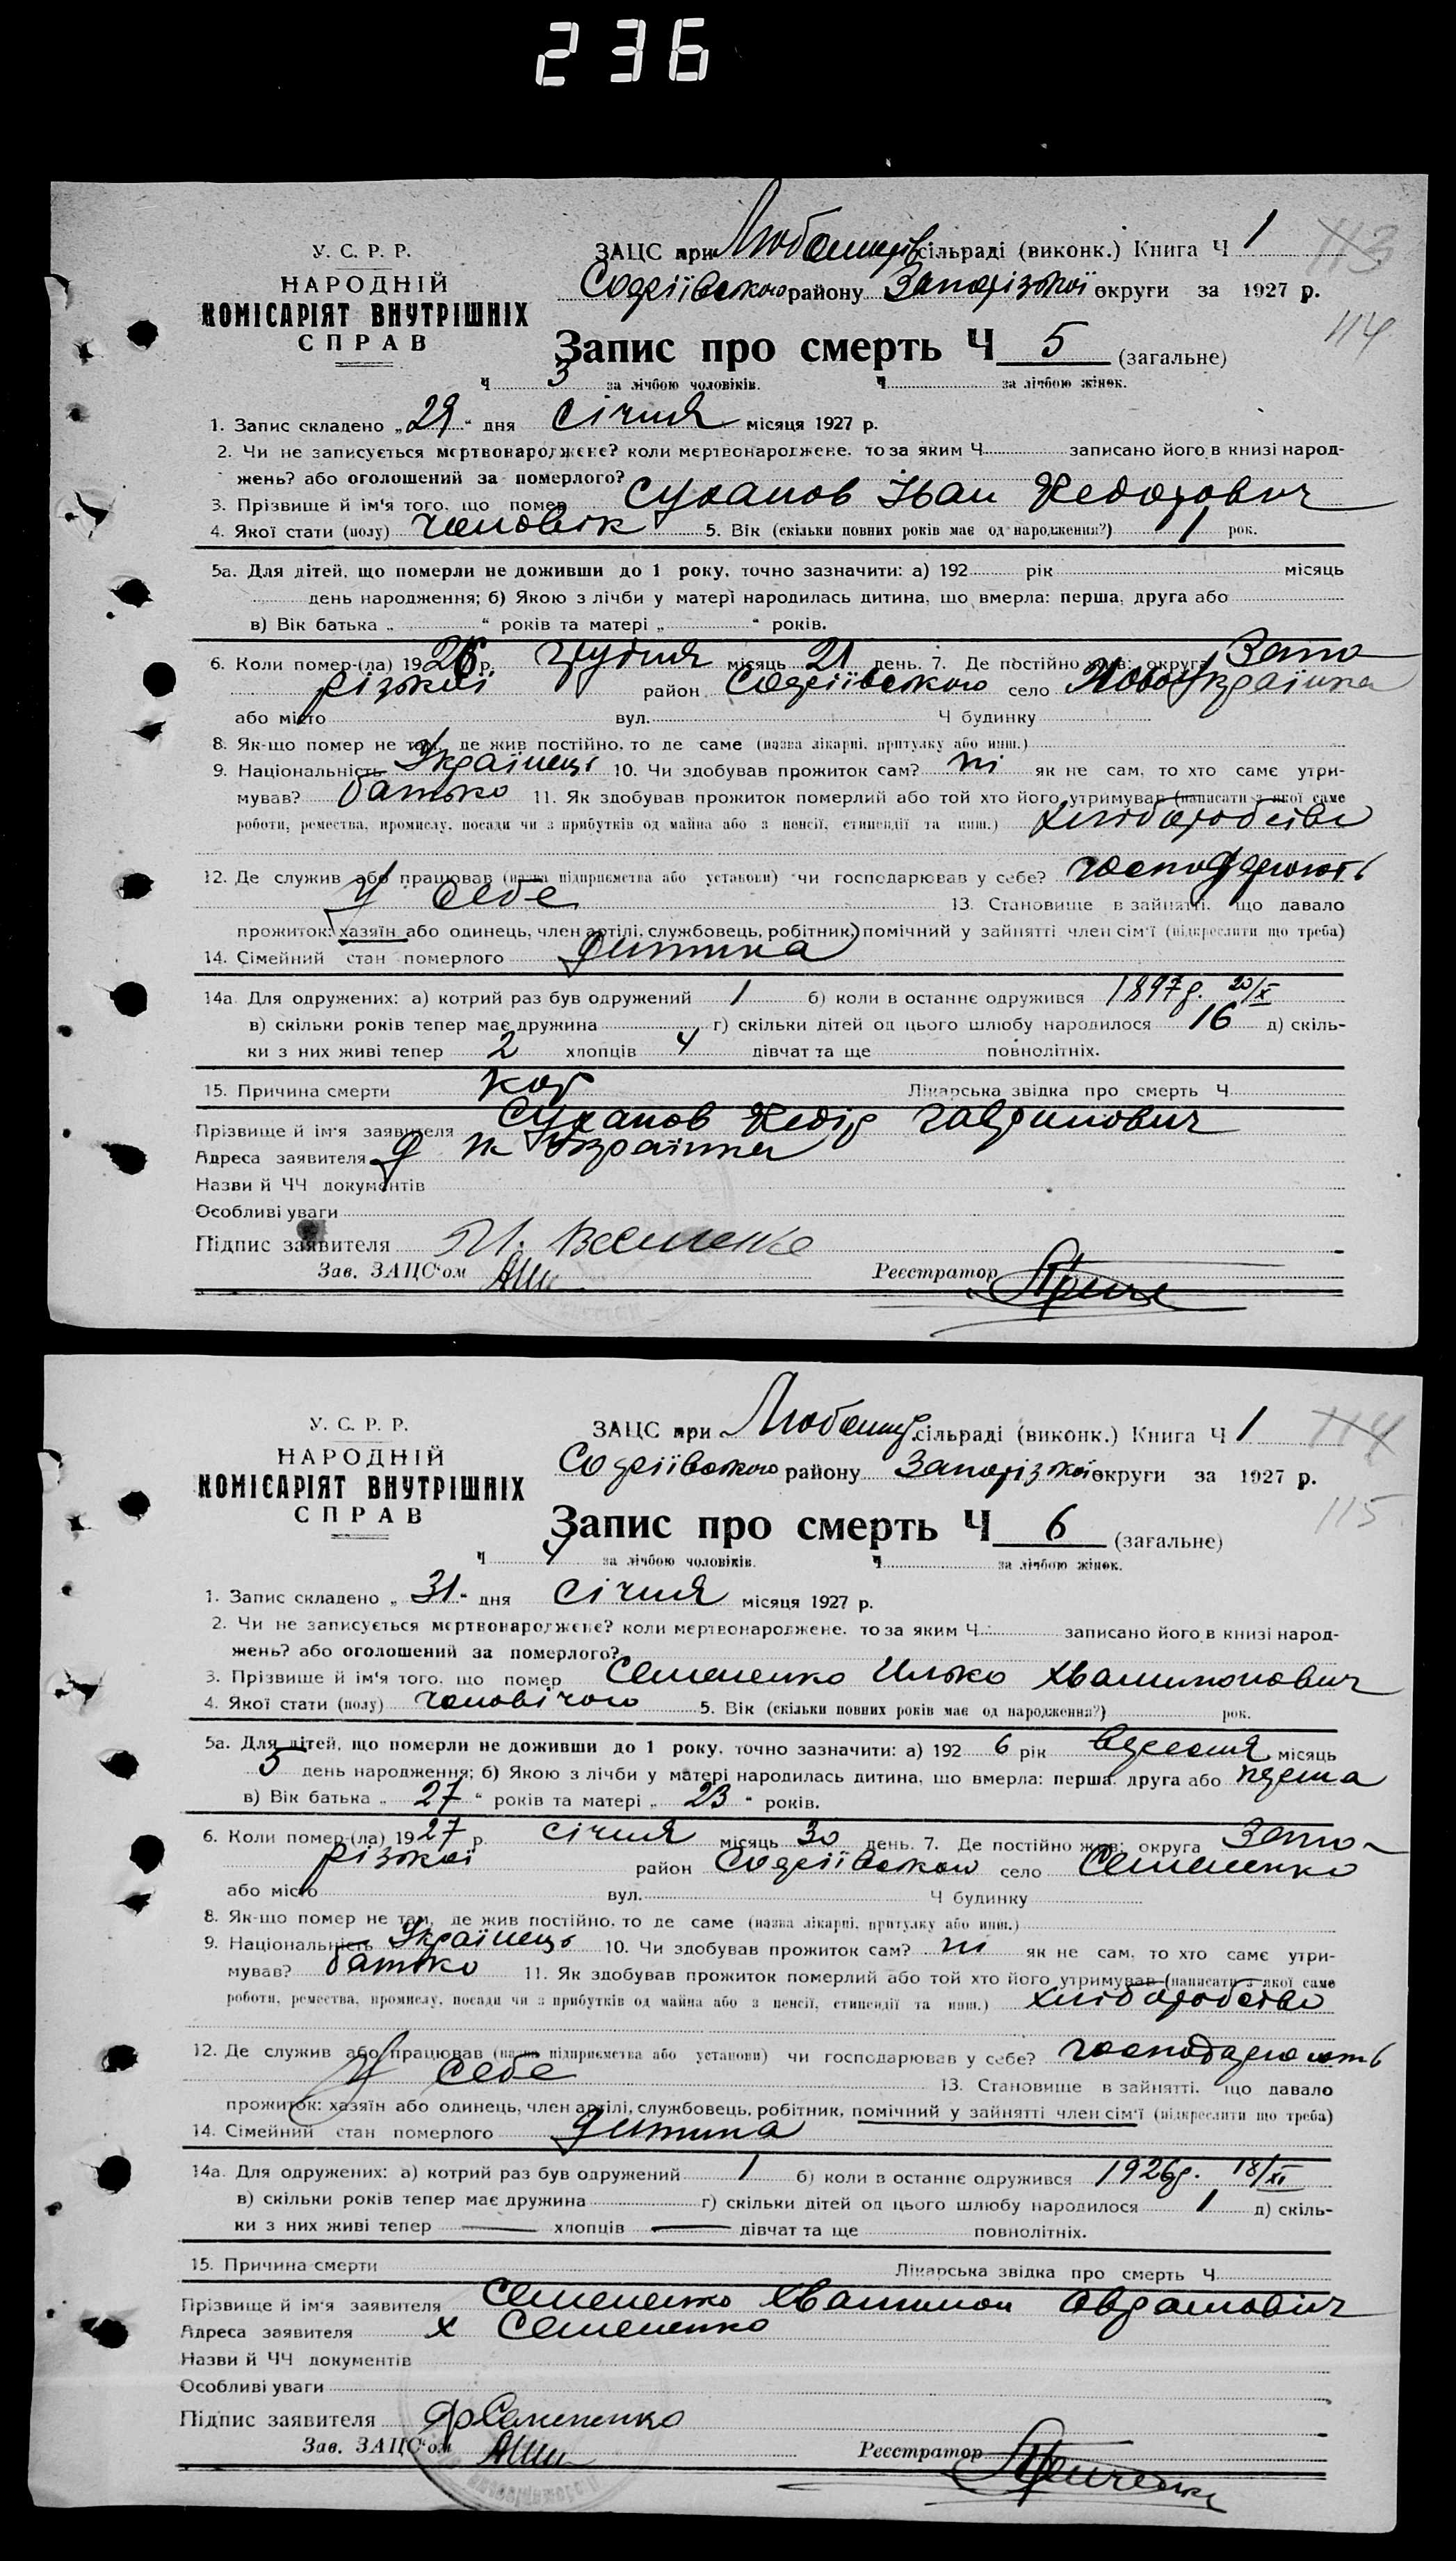 236
У. С. Р. Р.
НАРОДНІЙ
КОМІСАРІЯТ ВНУТРІШНІХ
СПРАВ
ЗАЦС при сільраді (виконк.) Книга Ч 1
113
Софіївського району Запорізької округи за 1927 р.
114
Запис про смерть Ч 5 (загальне)
Ч 3 за лічбою чоловіків. Ч за лічбою жінок.
1. Запис складено „29“ дня Січня місяця 1927 р.
2. Чи не записується мертвонароджене? коли мертвонароджене, то за яким Ч записано його в книзі народ-
жень? або оголошений за померлого?
3. Прізвище й ім'я того, що помер Суханов Іван Хедорович
4. Якої стати (полу) чоловік 5. Вік (скільки повних років має од народження?) 1 рок.
5а. Для дітей, що померли не доживши до 1 року, точно зазначити: а) 192 рік місяць
день народження; б) Якою з лічби у матері народилась дитина, що вмерла: перша, друга або
в) Вік батька „ “ років та матері „ “ років.
6. Коли помер-(ла) 1926 р. грудня місяць 21 день. 7. Де постійно жив: округа Запо-
різької район Софіївського село НовоУкраїнка
або місто вул. Ч будинку
8. Як-що помер не там, де жив постійно, то де саме (назва лікарні, притулку або инш.)
9. Національність Українець 10. Чи здобував прожиток сам? ні як не сам, то хто саме утри-
мував? батько 11. Як здобував прожиток померлий або той хто його утримував (написати з якої саме
роботи, ремества, промислу, посади чи з прибутків од майна або з пенсії, стипендії та инш.) хліборобство
12. Де служив або працював (назва підприємства або установи) чи господарював у себе? господарюють
У себе 13. Становище в зайнятті, що давало
прожиток: хазяїн або одинець, член артілі, службовець, робітник, помічний у зайнятті член сім'ї (підкреслити що треба)
14. Сімейний стан померлого дитина
14а. Для одружених: а) котрий раз був одружений 1 б) коли в останнє одружився 1897р. 20/X
в) скільки років тепер має дружина г) скільки дітей од цього шлюбу народилося 16 д) скіль-
ки з них живі тепер 2 хлопців 4 дівчат та ще повнолітніх.
15. Причина смерти кор Лікарська звідка про смерть Ч
Прізвище й ім'я заявителя Суханов Хедір Гаврилович
Адреса заявителя Н Українка
Назви й ЧЧ документів
Особливі уваги
Підпис заявителя
Зав. ЗАЦС'ом Реєстратор
У. С. Р. Р.
НАРОДНІЙ
КОМІСАРІЯТ ВНУТРІШНІХ
СПРАВ
ЗАЦС при сільраді (виконк.) Книга Ч 1
114
Софіївського району Запорізької округи за 1927 р.
115
Запис про смерть Ч 6 (загальне)
Ч 4 за лічбою чоловіків. Ч за лічбою жінок.
1. Запис складено „31“ дня Січня місяця 1927 р.
2. Чи не записується мертвонароджене? коли мертвонароджене, то за яким Ч записано його в книзі народ-
жень? або оголошений за померлого?
3. Прізвище й ім'я того, що помер Семененко Илько Хвалимонович
4. Якої стати (полу) чоловічого 5. Вік (скільки повних років має од народження?) рок.
5а. Для дітей, що померли не доживши до 1 року, точно зазначити: а) 192 6 рік вересня місяць
5 день народження; б) Якою з лічби у матері народилась дитина, що вмерла: перша, друга або перша
в) Вік батька „ 27 “ років та матері „ 23 “ років.
6. Коли помер-(ла) 1927 р. січня місяць 30 день. 7. Де постійно жив: округа Запо-
різької район Софіївського село Семененко
або місто вул. Ч будинку
8. Як-що помер не там, де жив постійно, то де саме (назва лікарні, притулку або инш.)
9. Національність Українець 10. Чи здобував прожиток сам? ні як не сам, то хто саме утри-
мував? батько 11. Як здобував прожиток померлий або той хто його утримував (написати з якої саме
роботи, ремества, промислу, посади чи з прибутків од майна або з пенсії, стипендії та инш.) хліборобство
12. Де служив або працював (назва підприємства або установи) чи господарював у себе? господарюють
У себе 13. Становище в зайнятті, що давало
прожиток: хазяїн або одинець, член артілі, службовець, робітник, помічний у зайнятті член сім'ї (підкреслити що треба)
14. Сімейний стан померлого дитина
14а. Для одружених: а) котрий раз був одружений 1 б) коли в останнє одружився 1926р. 18/XI
в) скільки років тепер має дружина г) скільки дітей од цього шлюбу народилося 1 д) скіль-
ки з них живі тепер — хлопців — дівчат та ще повнолітніх.
15. Причина смерти Лікарська звідка про смерть Ч
Прізвище й ім'я заявителя Семененко Хвалимон Аврамович
Адреса заявителя х Семененко
Назви й ЧЧ документів
Особливі уваги
Підпис заявителя Семененко
Зав. ЗАЦС'ом Реєстратор